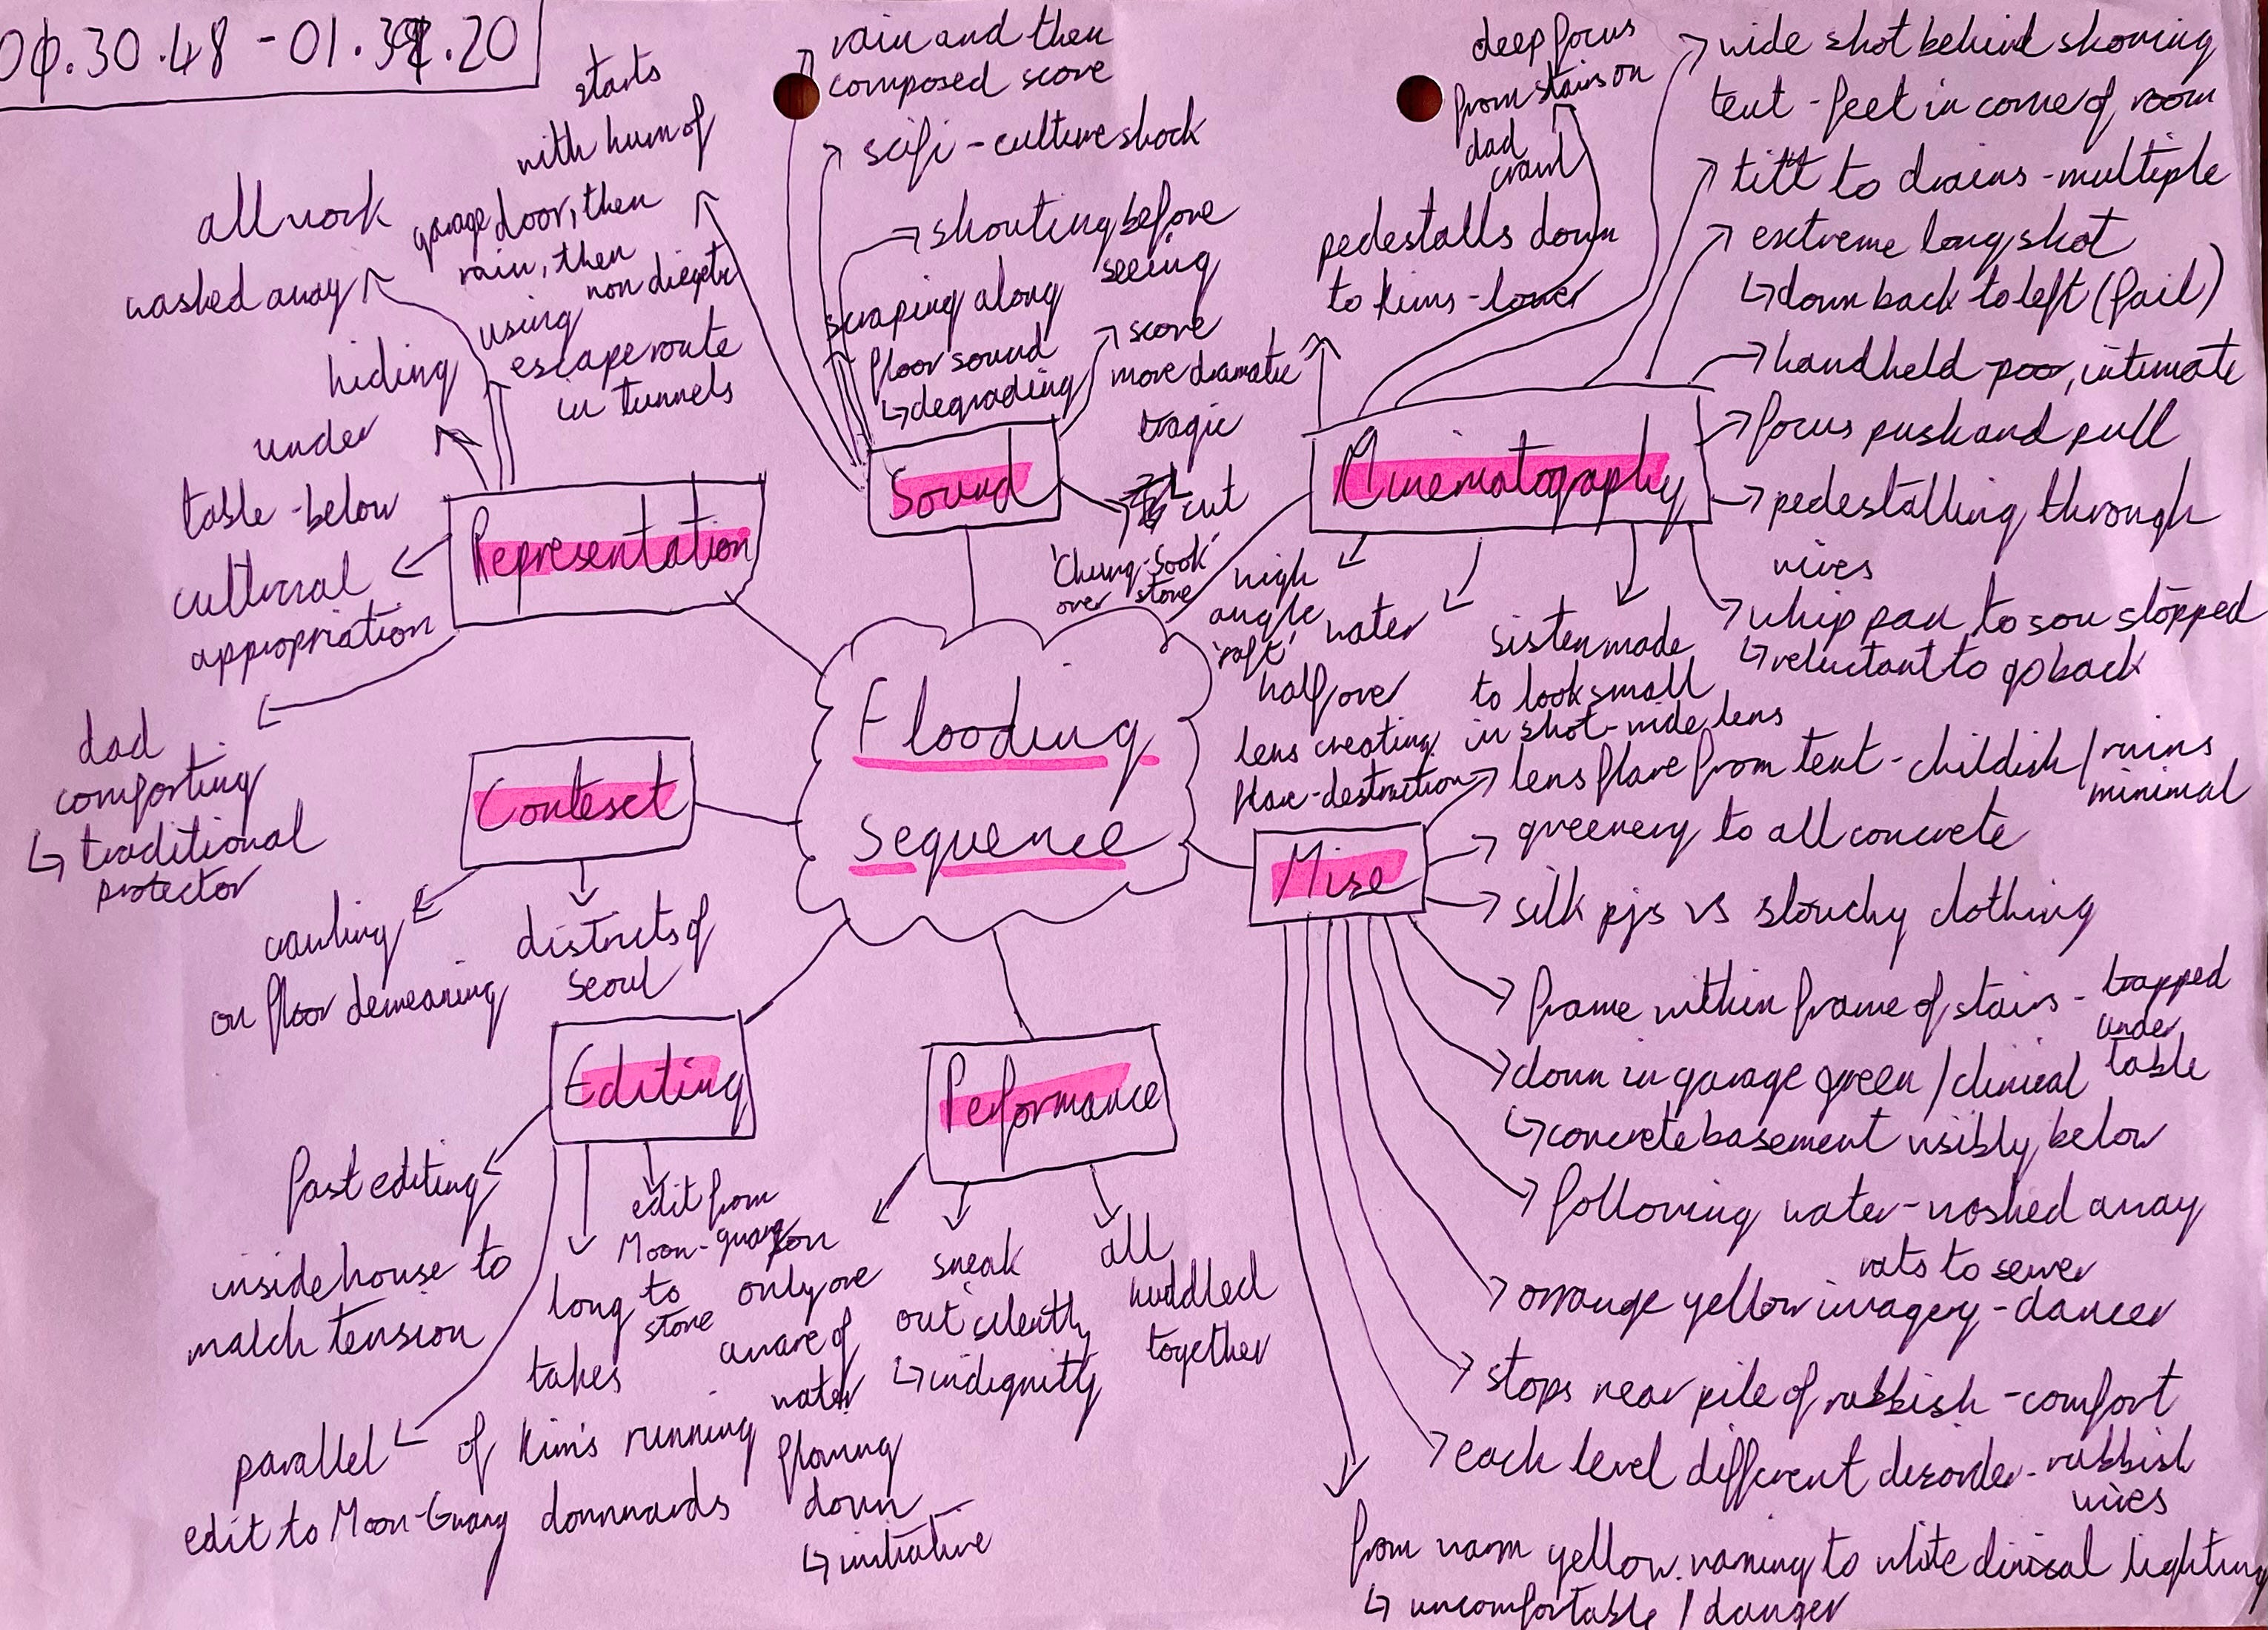 starts
with hum of
garage door, then
rain, then
non diegetic
all work
washed away
hiding
under
table - below
using
escape route
in tunnels
cultural
appropriation
dad
comforting
↳ traditional
protector
Representation
rain and then
composed score
scifi - culture shock
shouting before
seeing
scraping along
floor sound
↳ degrading
score
more dramatic
tragic
cut
'Chung-Sook'
over stove
Sound
deep focus
from stairs on
dad
crawl
pedestalls down
to Kims - lower
wide shot behind showing
tent - feet in corner of room
tilt to drains - multiple
extreme long shot
↳ down back to left (fail)
handheld - poor, intimate
focus push and pull
pedestalling through
wires
whip pan to son stopped
↳ reluctant to go back
Cinematography
high
angle
'raft'
water
half over
lens creating
flare - destruction
sister made
to look small
in shot - wide lens
Flooding
Sequence
Context
crawling
on floor demeaning
districts of
seoul
Mise
lens flare from tent - childish / ruins
minimal
greenery to all concrete
silk pjs vs slouchy clothing
frame within frame of stairs - trapped
under
table
down in garage green / clinical
↳ concrete basement visibly below
following water - washed away
rats to sewer
orange yellow imagery - danger
stops near pile of rubbish - comfort
each level different disorder - rubbish
wires
from warm yellow warning to white clinical lighting
↳ uncomfortable / danger
Editing
fast editing
inside house to
match tension
parallel
edit to Moon-Gwang
long
takes
of Kim's running
downwards
edit from
Moon-guang
to
stove
Performance
son
only one
aware of
water
flowing
down
↳ initiative
sneak
out silently
↳ indignitty
all
huddled
together